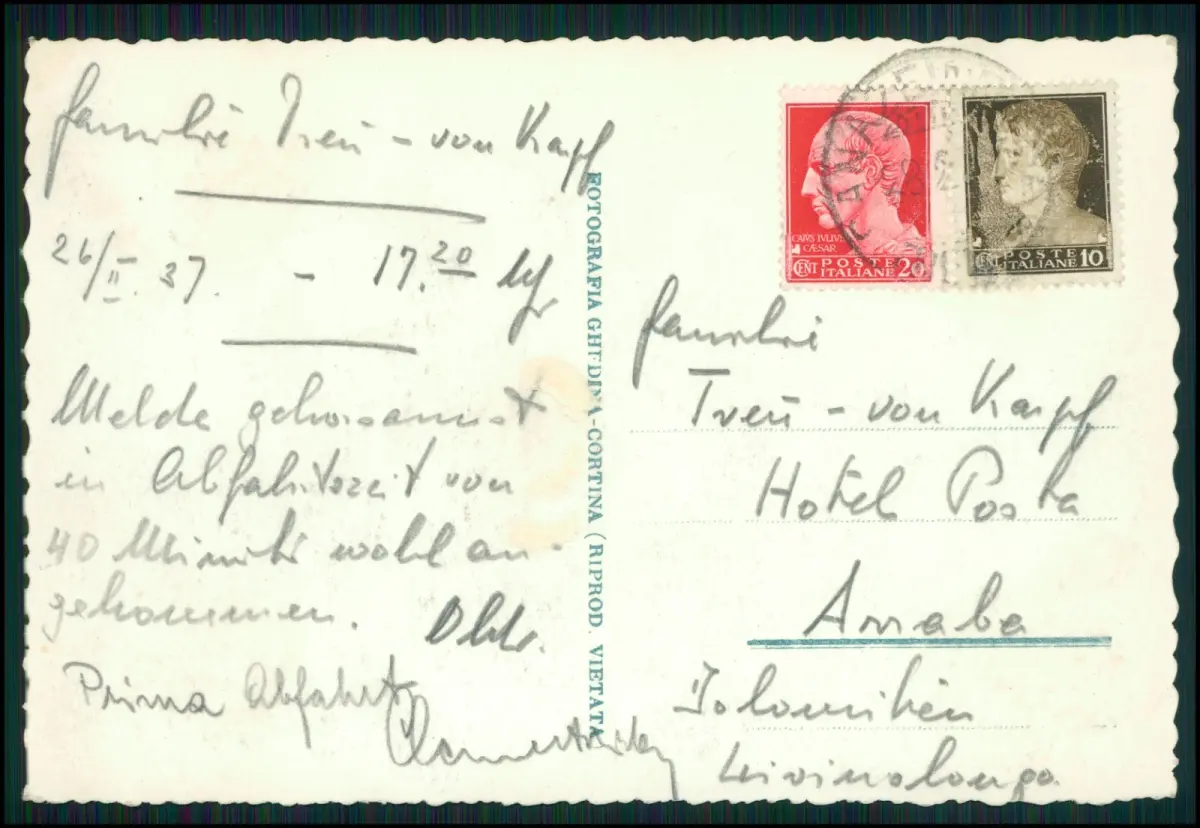 Familie Treu - von Kapf
26/II. 37. - 17.20 Uhr
Melde gehorsamst
in Abfahrtszeit von
40 Minuten wohl an-
gekommen.
Prima Abfahrt
FOTOGRAFIA GHEDINA-CORTINA (RIPROD. VIETATA
CAIVS IVLIVS
CAESAR
CENT POSTE
ITALIANE 20
CENT POSTE
ITALIANE 10
Familie
Treu - von Kapf
Hotel Posta
Arraba
Dolomiten
Livinalongo